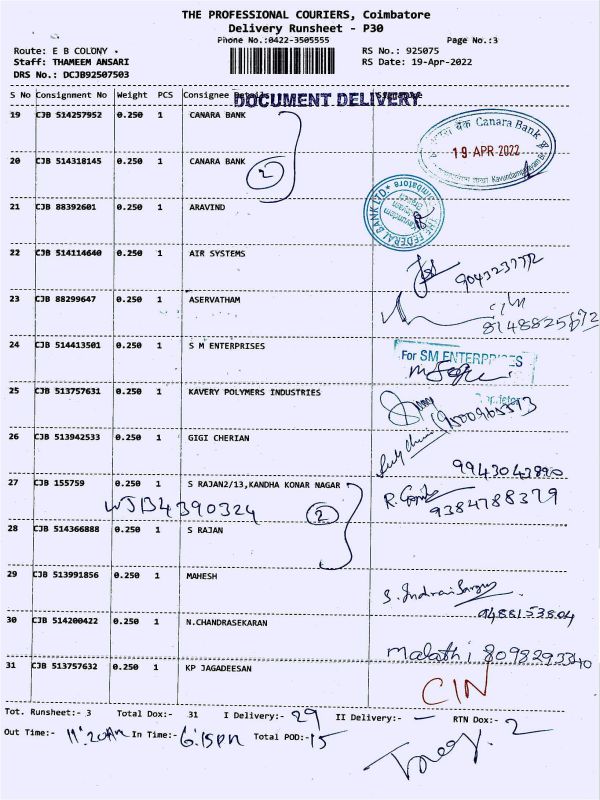 THE PROFESSIONAL COURIERS, Coimbatore
Delivery Runsheet - P30
Phone No.:0422-3505555
Page No.:3
Route: E B COLONY .
RS No.: 925075
Staff: THAMEEM ANSARI
RS Date: 19-Apr-2022
DRS No.: DCJB92507503
S No Consignment No Weight PCS Consignee Details Signature
DOCUMENT DELIVERY
19 CJB 514257952 0.250 1 CANARA BANK
Canara Bank
19 APR 2022
20 CJB 514318145 0.250 1 CANARA BANK
2
21 CJB 88392601 0.250 1 ARAVIND
THE FEDERAL BANK LTD.
22 CJB 514114640 0.250 1 AIR SYSTEMS
23 CJB 88299647 0.250 1 ASERVATHAM
24 CJB 514413501 0.250 1 S M ENTERPRISES
For SM ENTERPRISES
25 CJB 513757631 0.250 1 KAVERY POLYMERS INDUSTRIES
26 CJB 513942533 0.250 1 GIGI CHERIAN
9943043890
27 CJB 155759 0.250 1 S RAJAN2/13,KANDHA KONAR NAGAR
9384788379
WJB4390324
2
28 CJB 514366888 0.250 1 S RAJAN
29 CJB 513991856 0.250 1 MAHESH
9488153804
30 CJB 514200422 0.250 1 N.CHANDRASEKARAN
Malathi 8098293340
31 CJB 513757632 0.250 1 KP JAGADEESAN
CIN
Tot. Runsheet:- 3 Total Dox:- 31 I Delivery:- 29 II Delivery:- — RTN Dox:- 2
Out Time:- 11:20AM In Time:- 6:15PM Total POD:- 15